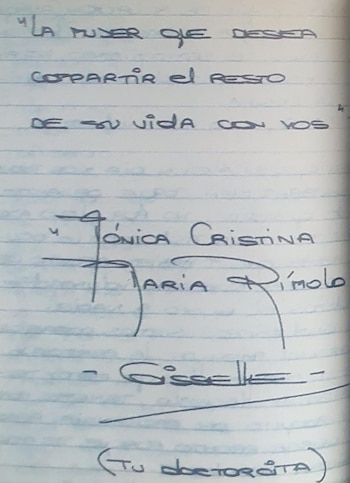 "LA MUJER QUE DESEA
COMPARTIR El RESTO
DE SU VIDA CON VOS".
"MÓNICA CRISTINA
MARIA RÍMOLO
- GISSELLE -
(TU DOCTORCITA)